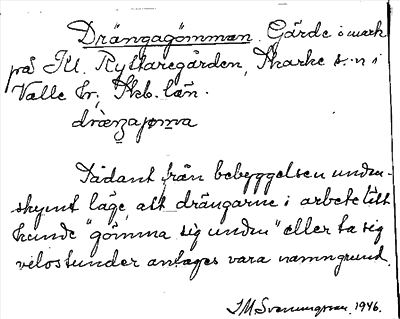 Drängagömman. Gärde i mark
på Ill. Ryttaregården, Skarke s:n i
Valle hr, Skb. län.
dræŋajøma
Sådant från bebyggelsen undan-
skymt läge, att drängarne i arbete lätt
kunde "gömma sig undan" eller ta sig
vilostunder antages vara namngrund.
1946.